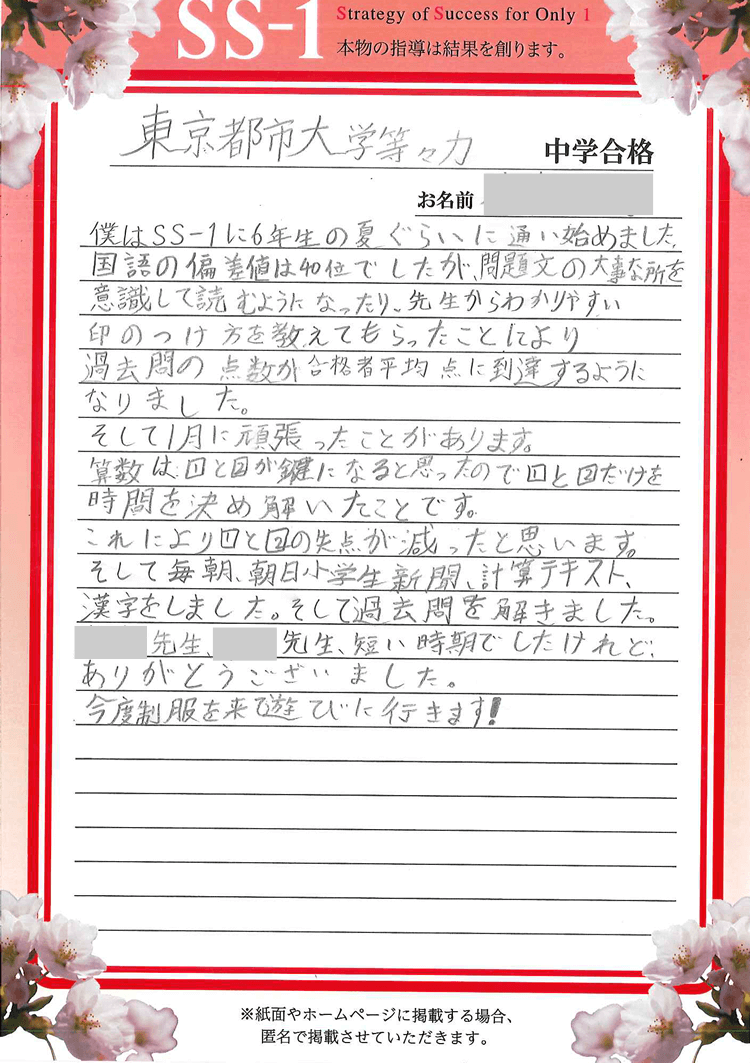 SS-1
Strategy of Success for Only 1
本物の指導は結果を創ります。
東京都市大学等々力 中学合格
お名前
僕はSS-1に6年生の夏ぐらいに通い始めました。
国語の偏差値は40位でしたが、問題文の大事な所を
意識して読むようになったり、先生からわかりやすい
印のつけ方を教えてもらったことにより
過去問の点数が合格者平均点に到達するように
なりました。
そして1月に頑張ったことがあります。
算数は□1と□2が鍵になると思ったので□1と□2だけを
時間を決め解いたことです。
これにより□1と□2の失点が減ったと思います。
そして毎朝、朝日小学生新聞、計算テキスト、
漢字をしました。そして過去問を解きました。
先生、先生、短い時期でしたけれど、
ありがとうございました。
今度制服を来て遊びに行きます!
※紙面やホームページに掲載する場合、
匿名で掲載させていただきます。